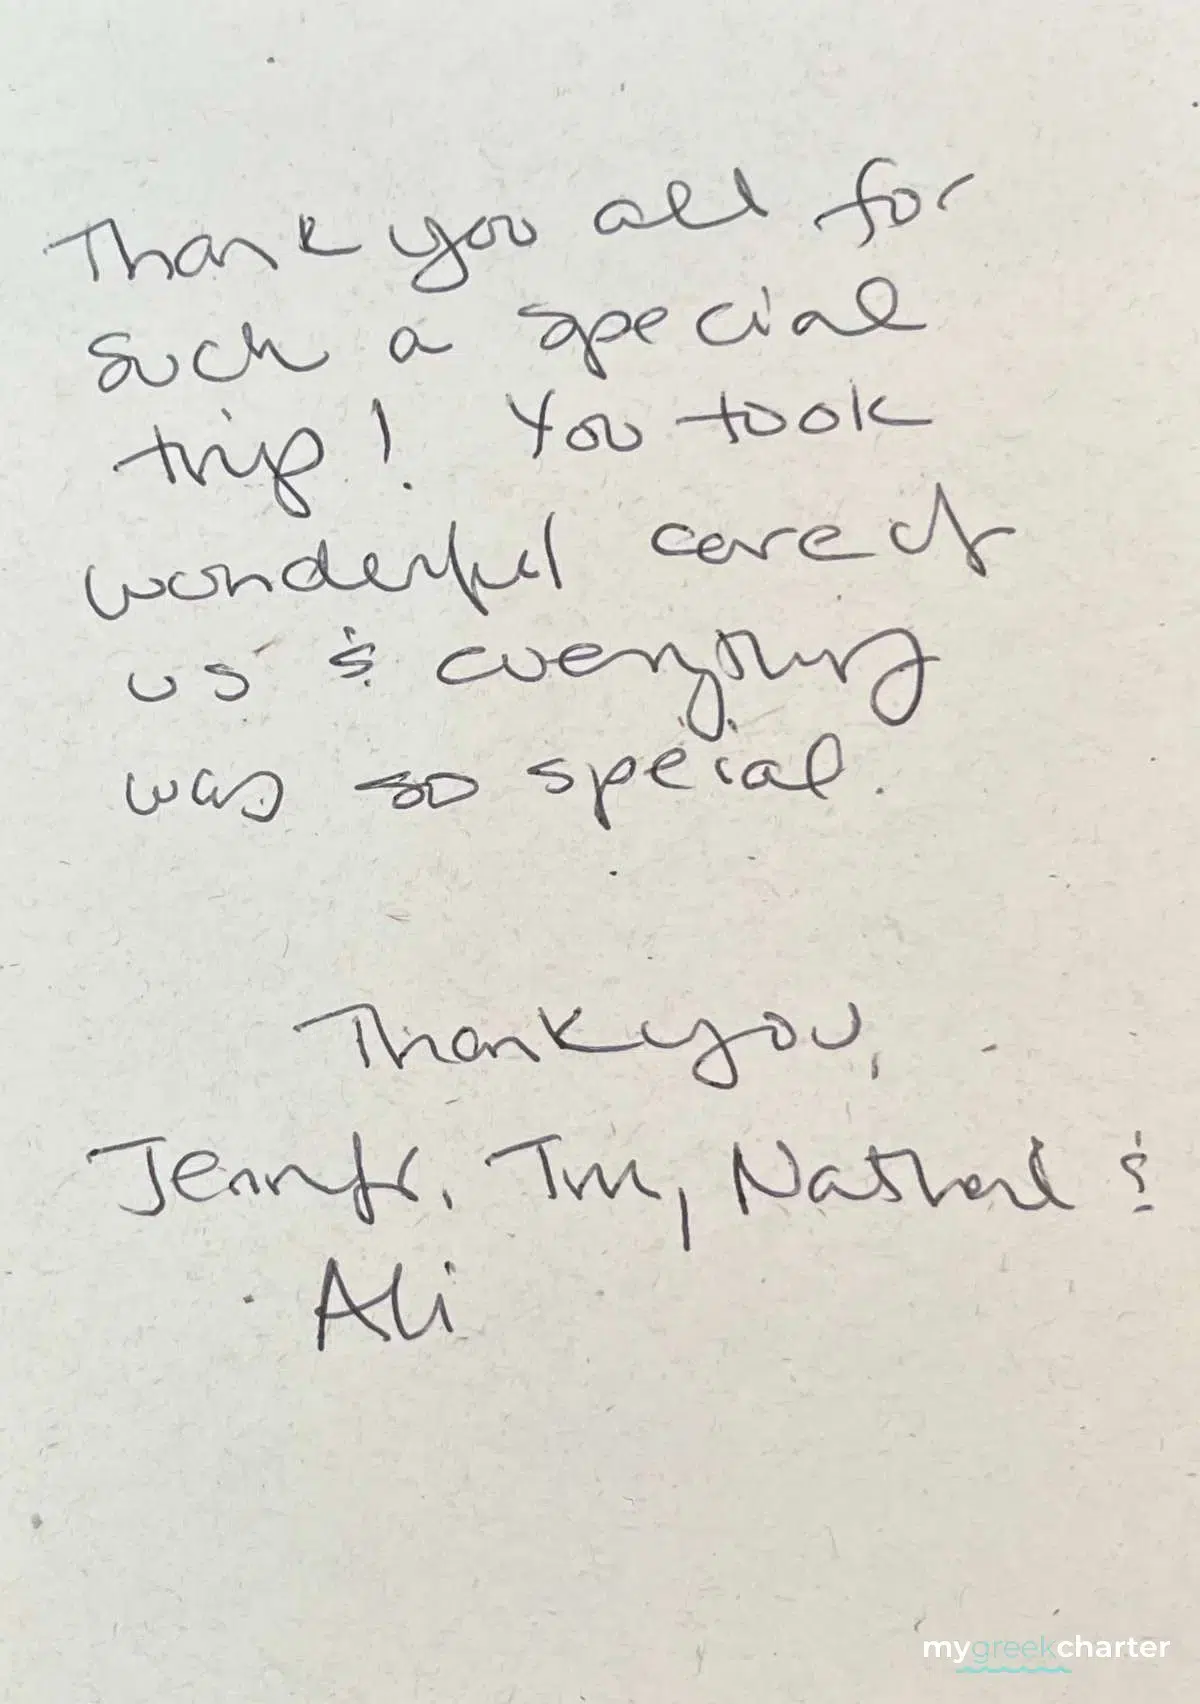 Thank you all for
such a special
trip! You took
wonderful care of
us & everything
was so special.
Thank you,
Jennifer, Tim, Nathaniel &
Ali
mygreekcharter